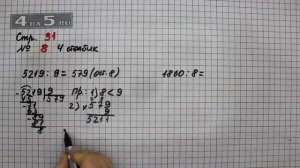 4DA5.RU
Стр. 91
№ 8 4 столбик
5219 : 9 = 579 (ост. 8) 1860 : 8 =
5219 | 9 Пр.: 1) 8 < 9
45 579
71 2) × 579
63 9
89 5211
81
8